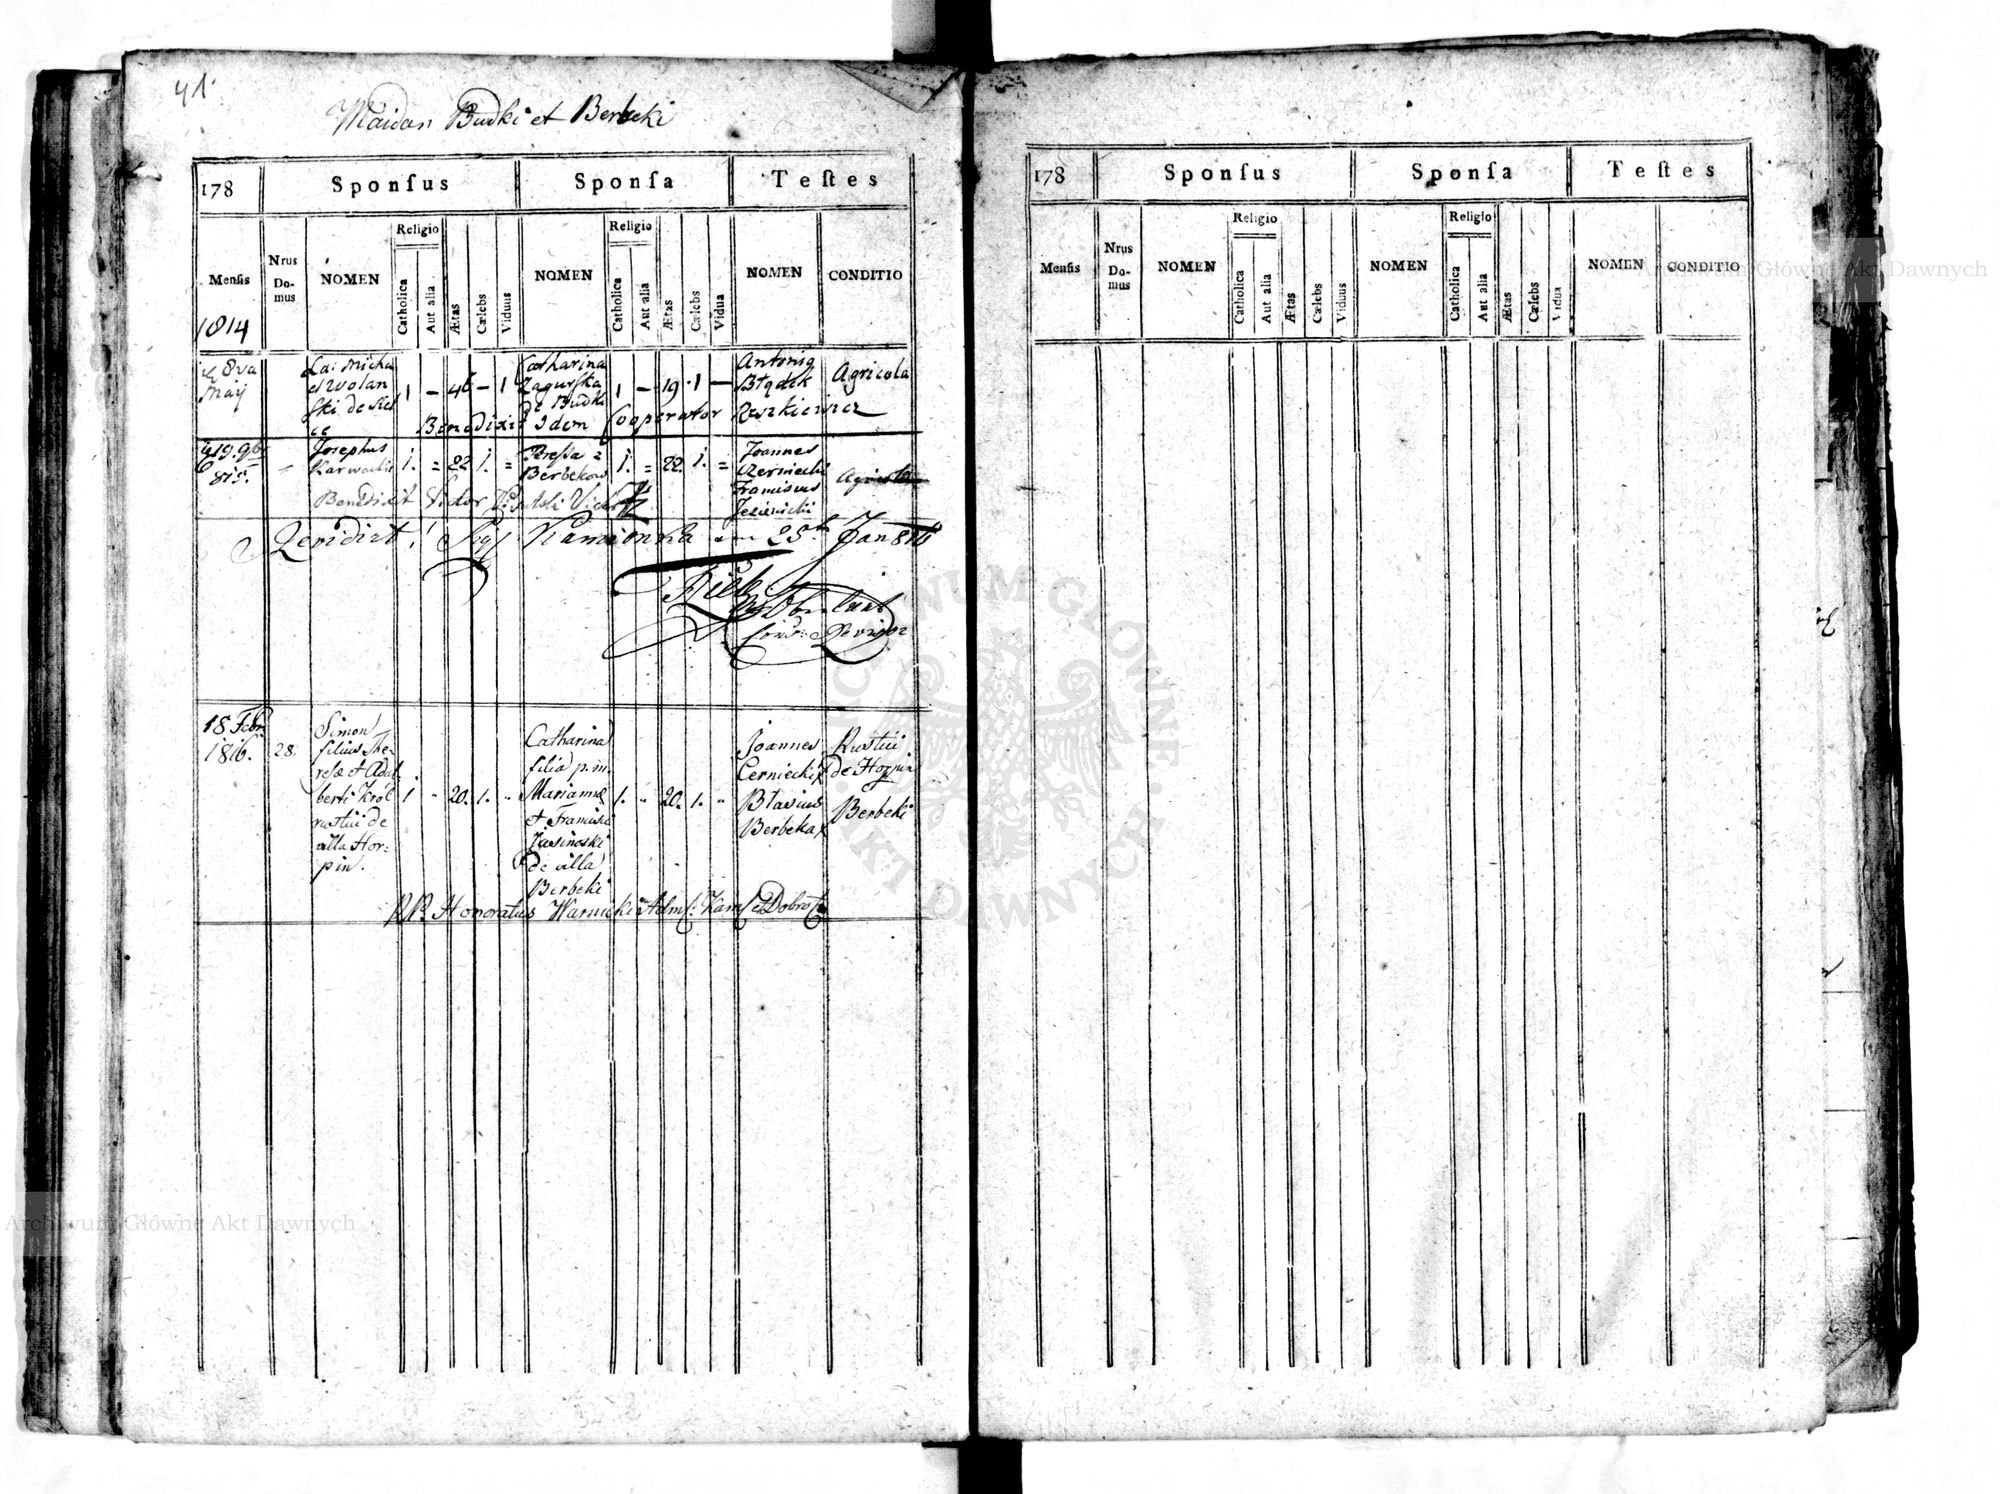 41.
Maidan Budki et Berbeki
178 Sponsus Sponsa Testes
Mensis Nrus Domus NOMEN Religio Catholica Aut alia Ætas Cælebs Viduus NOMEN Religio Catholica Aut alia Ætas Cælebs Vidua NOMEN CONDITIO
1814
8va Maij
1 – 46 – 1
Catharina Zagurska de Budki
1 – 19 · 1 –
Antonig Błądek
Agricola
Benedixit Idem Cooperator Reszkiewicz
19. 9br 815.
Josephus Karwacki
1. = 22 1. =
Berbekow
1. = 22. 1. =
Joannes Czerniecki
Franciscus Jezienicki
Agricola
Benedixit Victor
Revidirt! Sigl Kamionka am 25t Jan 816
18 Febr. 1816.
28.
Simon filius Theresæ et Adalberti Król rustici de villa Horpin.
1 " 20. 1. "
Catharina filia p.m. Mariannæ et Francisci Jasiński de villa Berbeki
1. " 20. 1. "
Joannes Cerniecki x
Rustici de Horpin
Blasius Berbeka x
Berbeki
PP. Honoratus Warnicki Adms: Kam: et Dobrot
178 Sponsus Sponsa Testes
Mensis Nrus Domus NOMEN Religio Catholica Aut alia Ætas Cælebs Viduus NOMEN Religio Catholica Aut alia Ætas Cælebs Vidua NOMEN CONDITIO
Archiwum Główne Akt Dawnych
Archiwum Główne Akt Dawnych
ARCHIWUM GŁÓWNE AKT DAWNYCH